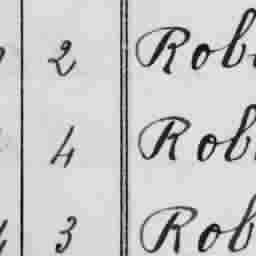 2 Rob
4 Rob
3 Rob